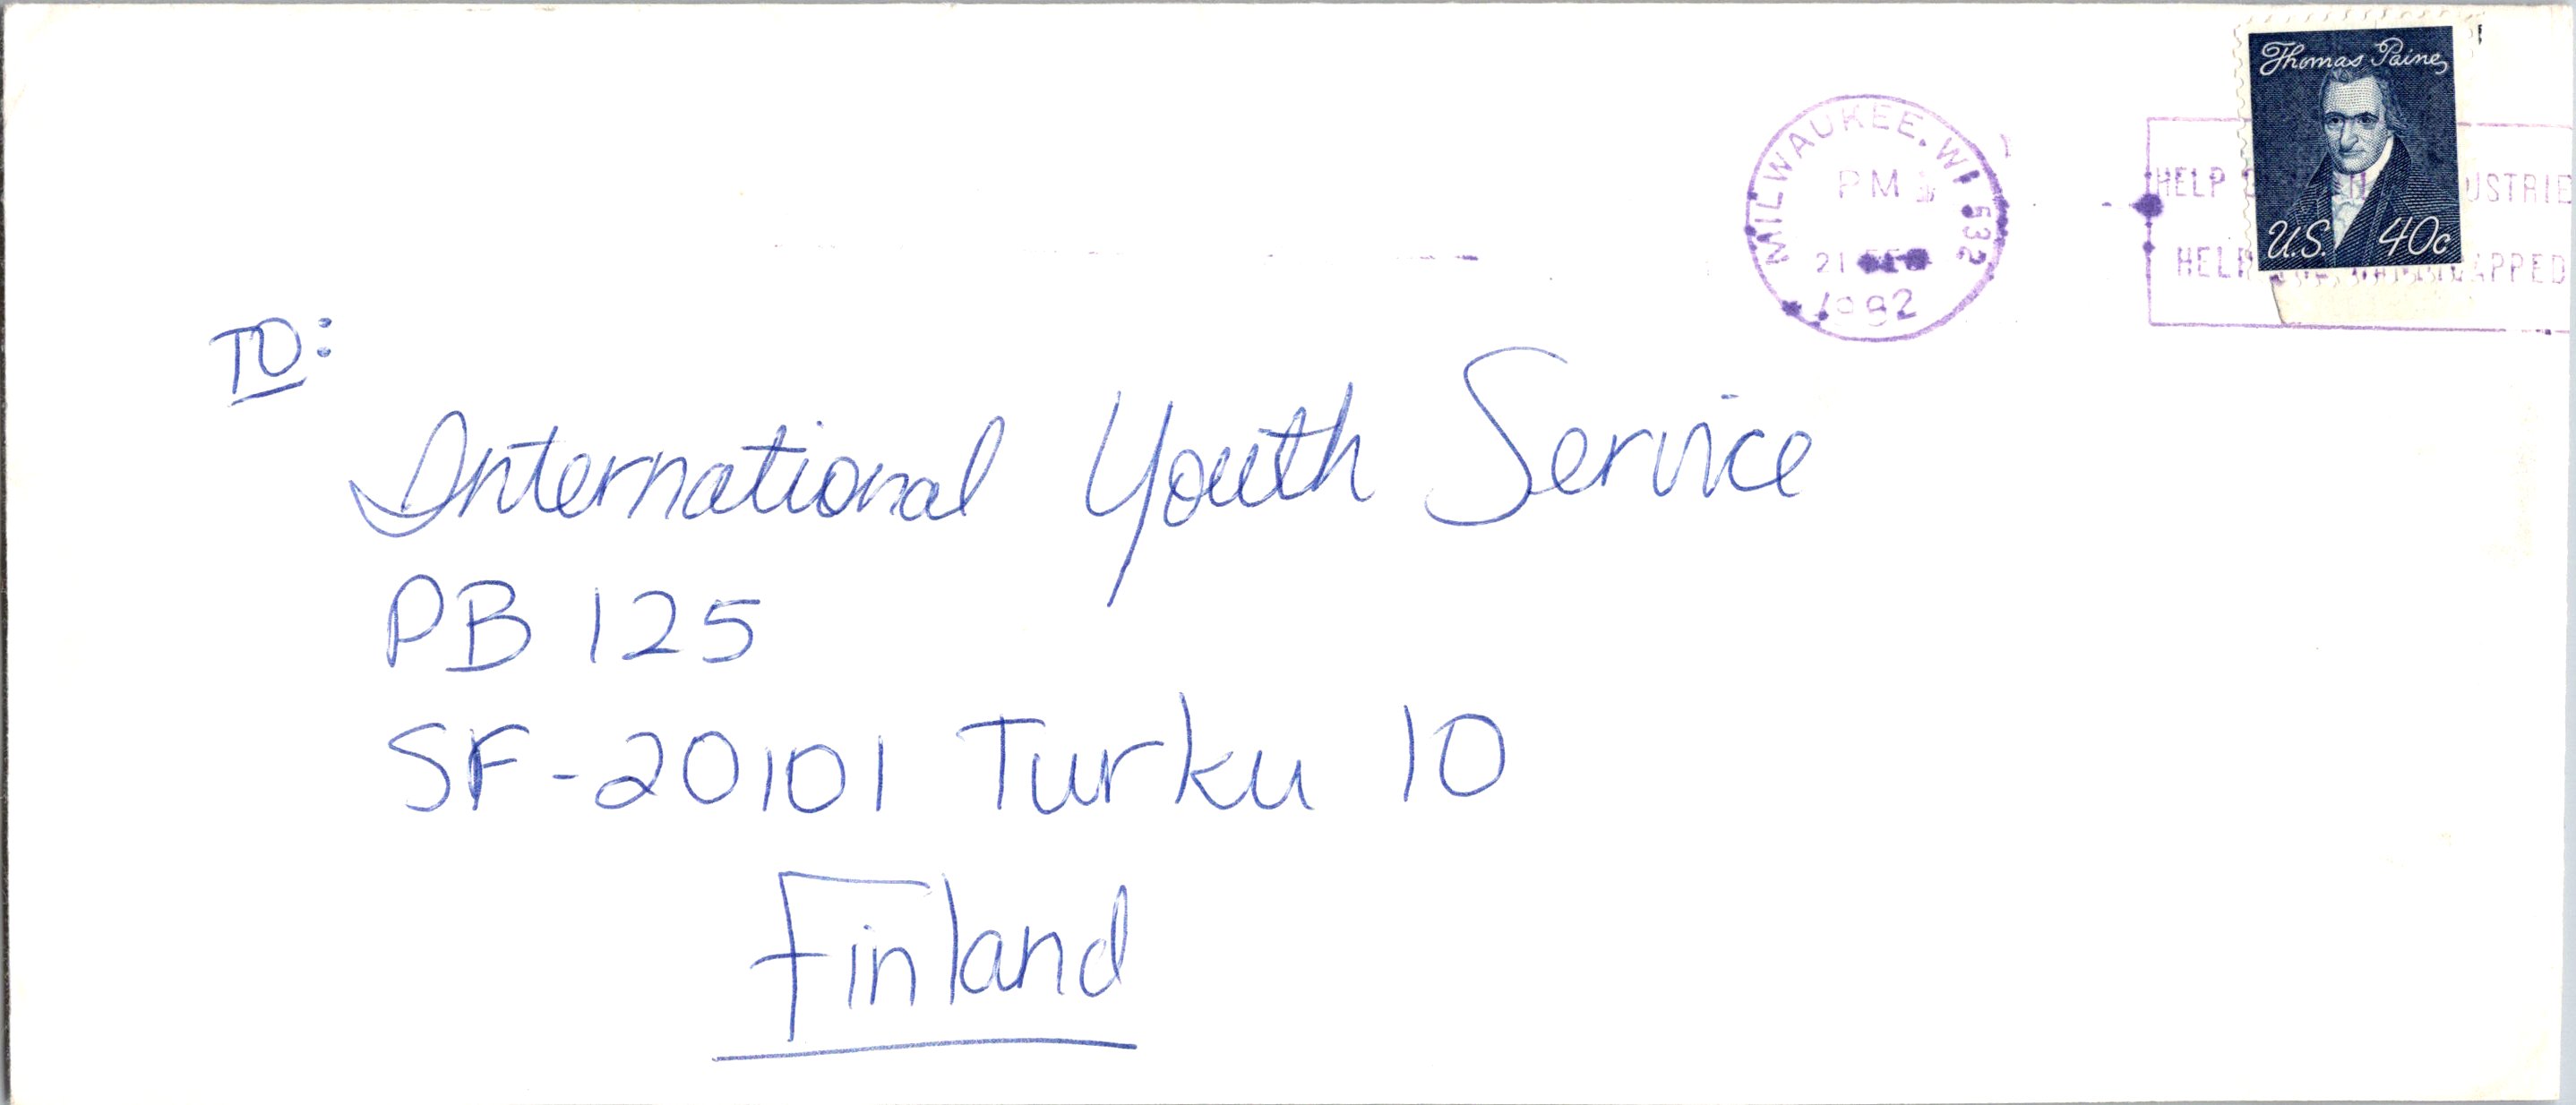 Thomas Paine
U.S. 40c
MILWAUKEE, WI 532
PM
21
1982
HELP
HELP
TO:
International Youth Service
PB 125
SF-20101 Turku 10
Finland